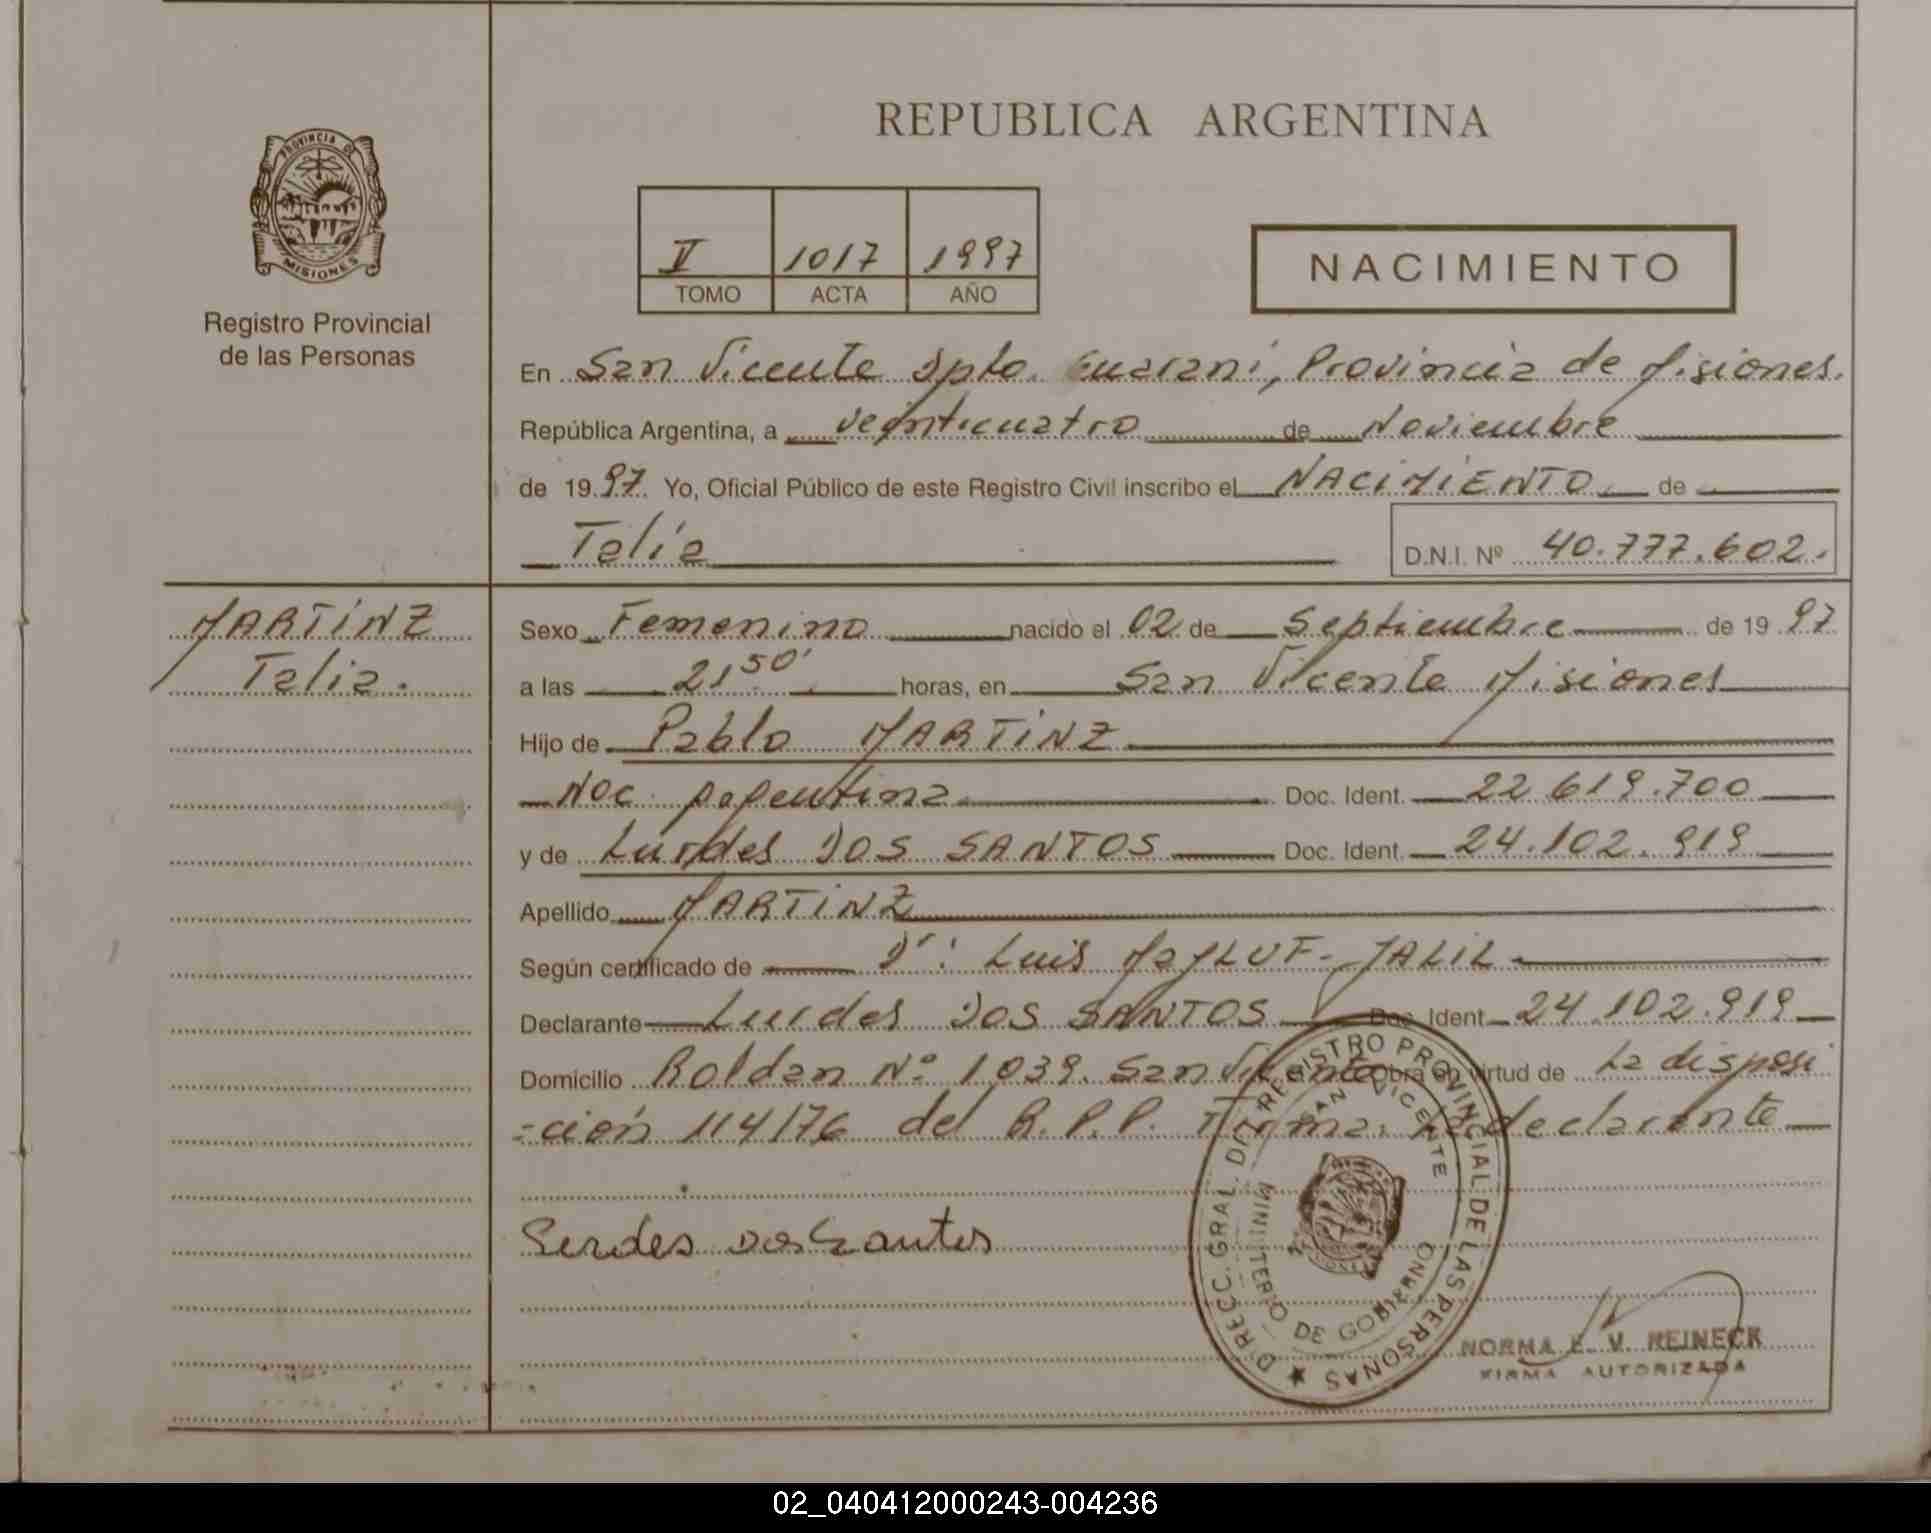 REPUBLICA ARGENTINA
PROVINCIA DE
MISIONES
Registro Provincial
de las Personas
II 1017 1997
TOMO ACTA AÑO
NACIMIENTO
En San Vicente Dpto. Guaraní, Provincia de Misiones.
República Argentina, a veinticuatro de Noviembre
de 1997. Yo, Oficial Público de este Registro Civil inscribo el NACIMIENTO de
Talía
D.N.I. Nº 40.777.602.
MARTINZ
Talia.
Sexo Femenino nacido el 02 de Septiembre de 1997
a las 21 50' horas, en San Vicente Misiones
Hijo de Pablo MARTINZ
Nac. argentina Doc. Ident. 22.619.700
y de Lurdes DOS SANTOS Doc. Ident. 24.102.919
Apellido MARTINZ
Según certificado de Dr: Luis MaJLUF-JALIL
Declarante Lurdes DOS SANTOS Doc. Ident 24.102.919
Domicilio Roldan Nº 1039. San Vicente Obra en virtud de La disposi
-ción 114/76 del R.P.P. Firma: La declarante
Lurdes dos Santos
DIRECC. GRAL. DEL REGISTRO PROVINCIAL DE LAS PERSONAS
SAN VICENTE
MINISTERIO DE GOBIERNO
NORMA E. V. REINECK
FIRMA AUTORIZADA
02_040412000243-004236